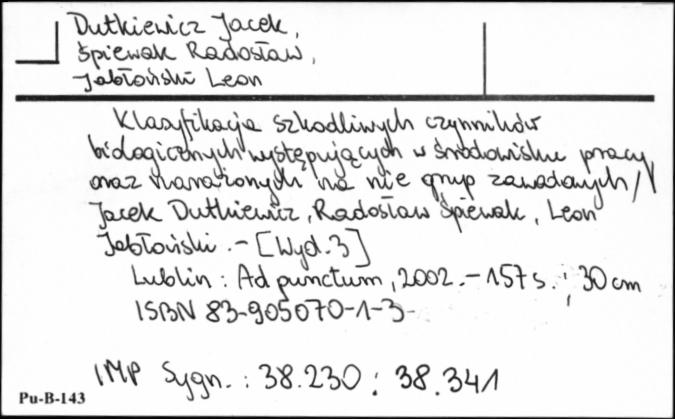 Dutkiewicz Jacek,
Śpiewak Radosław,
Jabłoński Leon
Klasyfikacja szkodliwych czynników
biologicznych występujących w środowisku pracy
oraz narażonych na nie grup zawodowych /
Jacek Dutkiewicz, Radosław Śpiewak, Leon
Jabłoński. - [Wyd. 3]
Lublin : Ad punctum, 2002. - 157 s. ; 30 cm
ISBN 83-905070-1-3
IMP Sygn. : 38.230 ; 38.341
Pu-B-143